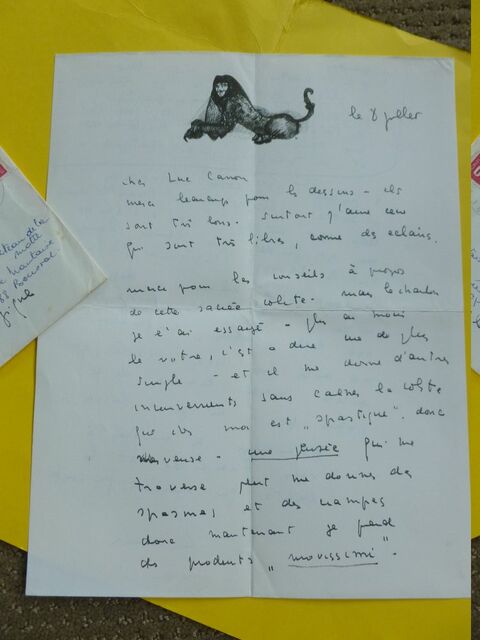 le 8 juillet
cher Luc Canon
merci beaucoup pour les dessins - ils
sont très bons - surtout j'aime ceux
qui sont très libres, comme des eclairs.
merci pour les conseils à propos
de cette sacrée colite - mais le charbon
je l'ai essayé - plus ou moins
le vôtre, c'est a dire une de plus
simple - et il me donne d'autres
inconvenients sans calmer la colite
qui chez moi est "spastique". donc
nerveuse - une pensée qui me
traverse peut me donner des
spasmes et des crampes
donc maintenant je prend
des produits "novissimi".